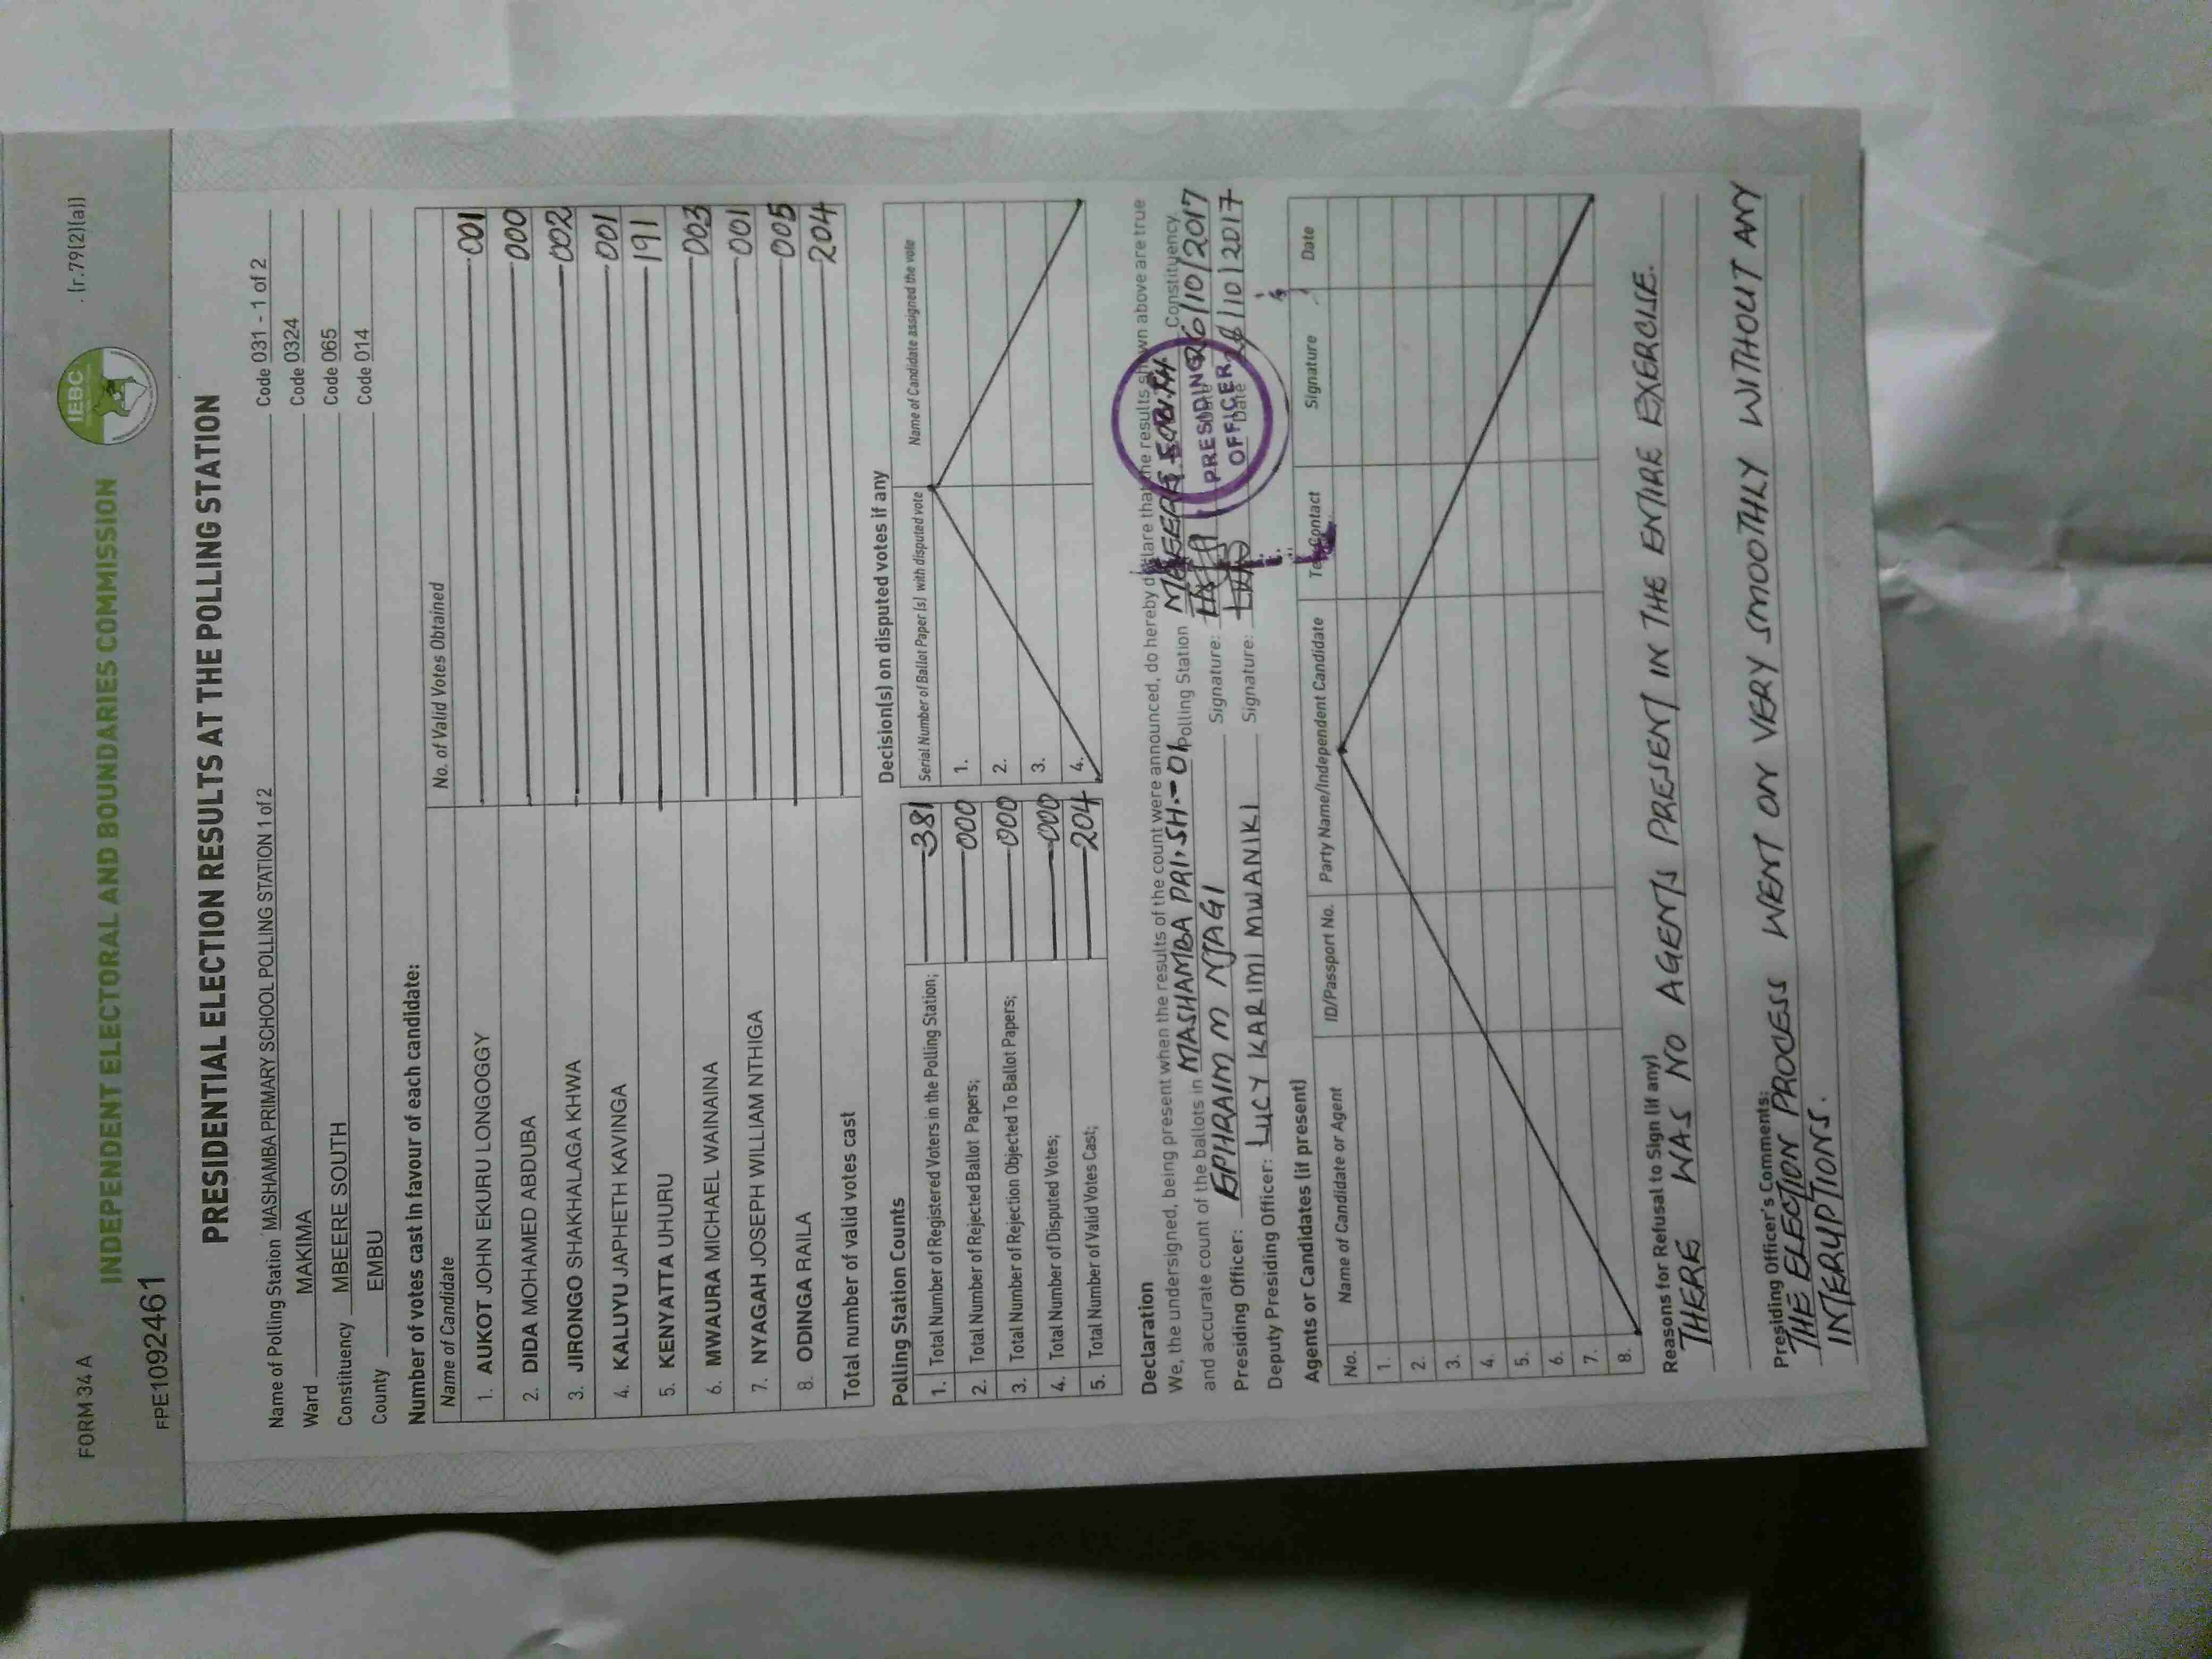 FORM 34 A
(r.79(2)(a))
INDEPENDENT ELECTORAL AND BOUNDARIES COMMISSION
IEBC
FPE1092461
PRESIDENTIAL ELECTION RESULTS AT THE POLLING STATION
Name of Polling Station MASHAMBA PRIMARY SCHOOL POLLING STATION 1 of 2 Code 031 - 1 of 2
Ward MAKIMA Code 0324
Constituency MBEERE SOUTH Code 065
County EMBU Code 014
Number of votes cast in favour of each candidate:
Name of Candidate No. of Valid Votes Obtained
1. AUKOT JOHN EKURU LONGOGGY 001
2. DIDA MOHAMED ABDUBA 000
3. JIRONGO SHAKHALAGA KHWA 002
4. KALUYU JAPHETH KAVINGA 001
5. KENYATTA UHURU 191
6. MWAURA MICHAEL WAINAINA 003
7. NYAGAH JOSEPH WILLIAM NTHIGA 001
8. ODINGA RAILA 005
Total number of valid votes cast 204
Polling Station Counts
1. Total Number of Registered Voters in the Polling Station; 381
2. Total Number of Rejected Ballot Papers; 000
3. Total Number of Rejection Objected To Ballot Papers; 000
4. Total Number of Disputed Votes; 000
5. Total Number of Valid Votes Cast; 204
Decision(s) on disputed votes if any
Serial Number of Ballot Paper (s) with disputed vote Name of Candidate assigned the vote
1.
2.
3.
4.
Declaration
We, the undersigned, being present when the results of the count were announced, do hereby declare that the results shown above are true
and accurate count of the ballots in MASHAMBA PRI. SH.-01 Polling Station MBEERE SOUTH Constituency
Presiding Officer: EPHRAIM M NJAGI Signature: Date 26/10/2017
Deputy Presiding Officer: LUCY KARIMI MWANIKI Signature: Date 26/10/2017
PRESIDING
OFFICER
Agents or Candidates (if present)
No. Name of Candidate or Agent ID/Passport No. Party Name/Independent Candidate Tel Contact Signature Date
1.
2.
3.
4.
5.
6.
7.
8.
Reasons for Refusal to Sign (if any)
THERE WAS NO AGENTS PRESENT IN THE ENTIRE EXERCISE.
Presiding Officer's Comments:
THE ELECTION PROCESS WENT ON VERY SMOOTHLY WITHOUT ANY
INTERUPTIONS.